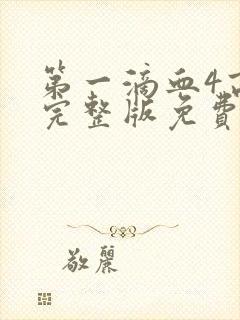 第一滴血4高
完整版免費
敬麗